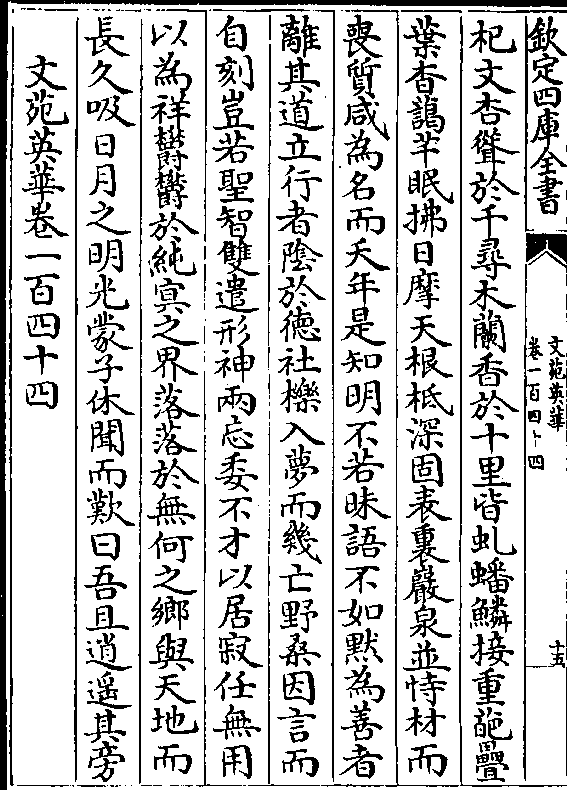 欽定四庫全書
文苑英華
卷一百四十四
十五
杞文杏聳於千尋木蘭香於十里皆虬蟠鱗接重葩疊
葉杳藹芊眠拂日摩天根柢深固表裏巖泉並恃材而
喪質咸為名而夭年是知明不若昧語不如默為善者
離其道立行者陰於德社櫟入夢而幾亡野桑因言而
自刻豈若聖智雙遣形神兩忘委不才以居寂任無用
以為祥欝欝於純寞之界落落於無何之鄉與天地而
長久吸日月之明光蒙子休聞而歎曰吾且逍遥其旁
文苑英華卷一百四十四